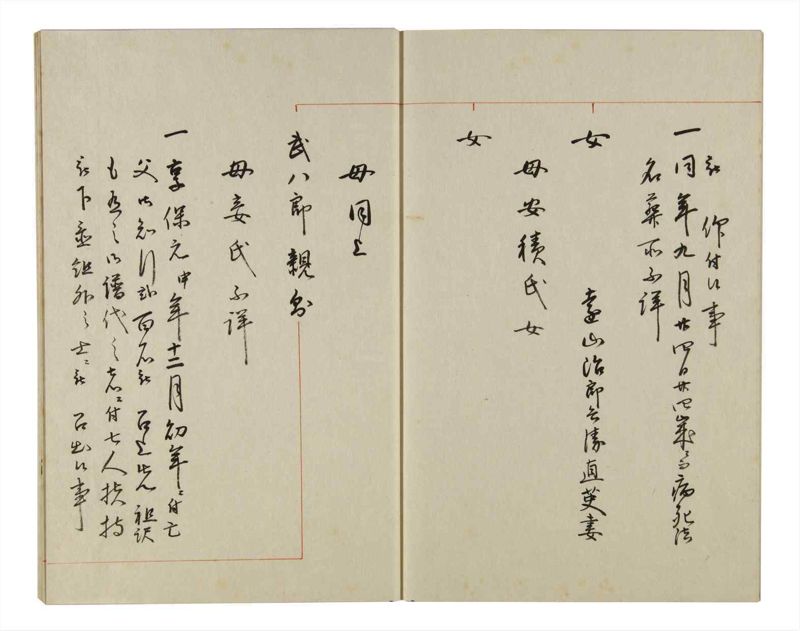 被 仰付候事
一 同年九月廿四日廿四歳ニ而病死法
名葬所不詳
女
遠山治郎兵衛直英妻
母安積氏女
女
母同上
武八郎親
母妾氏不詳
一 享保元申年十二月幼年ニ付亡
父知行 百石被 召上 祖
御譜代之 付七人扶持
被下 組外之士ニ被 召出候事